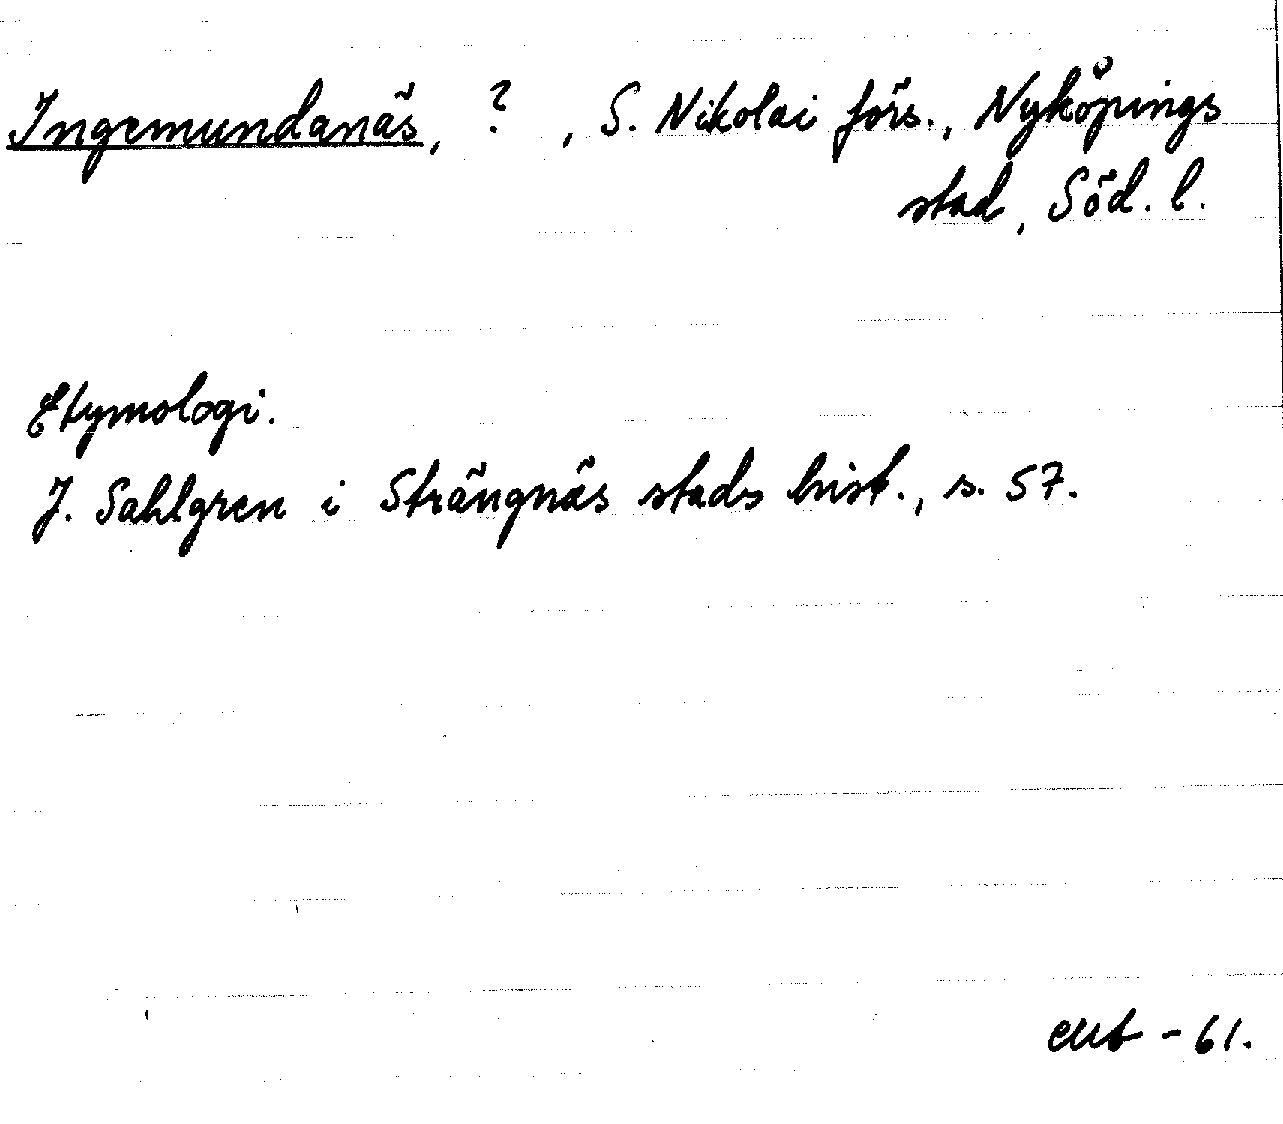 Ingemundanäs, ? , S. Nikolai förs., Nyköpings
stad, Söd. l.
Etymologi.
J. Sahlgren i Strängnäs stads hist., s. 57.
-61.